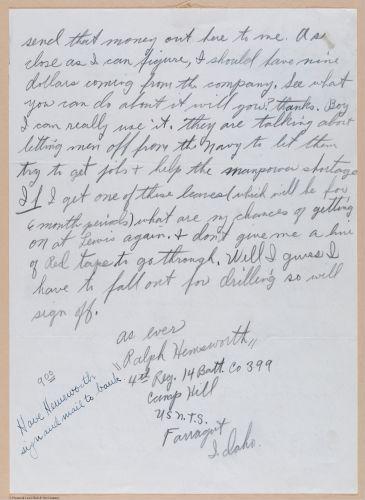 send that money out here to me. As
close as I can figure, I should have nine
dollars coming from the company. See what
you can do about it will you? thanks. Boy
I can really use it. They are talking about
letting men off from the Navy to let them
try to get jobs & help the manpower shortage
If I get one of these leaves (which will be for
6 month periods) what are my chances of getting
on at Lewis again. & don't give me a line
of Red tape to go through. Well I guess I
have to fall out for drilling so will
sign off.
as ever
"Ralph Hemsworth"
4th Reg. 14 Batt. Co 399
Camp Hill
U.S.N.T.S.
Farragut
Idaho.
9.00
Have Hemsworth
sign and mail to bank